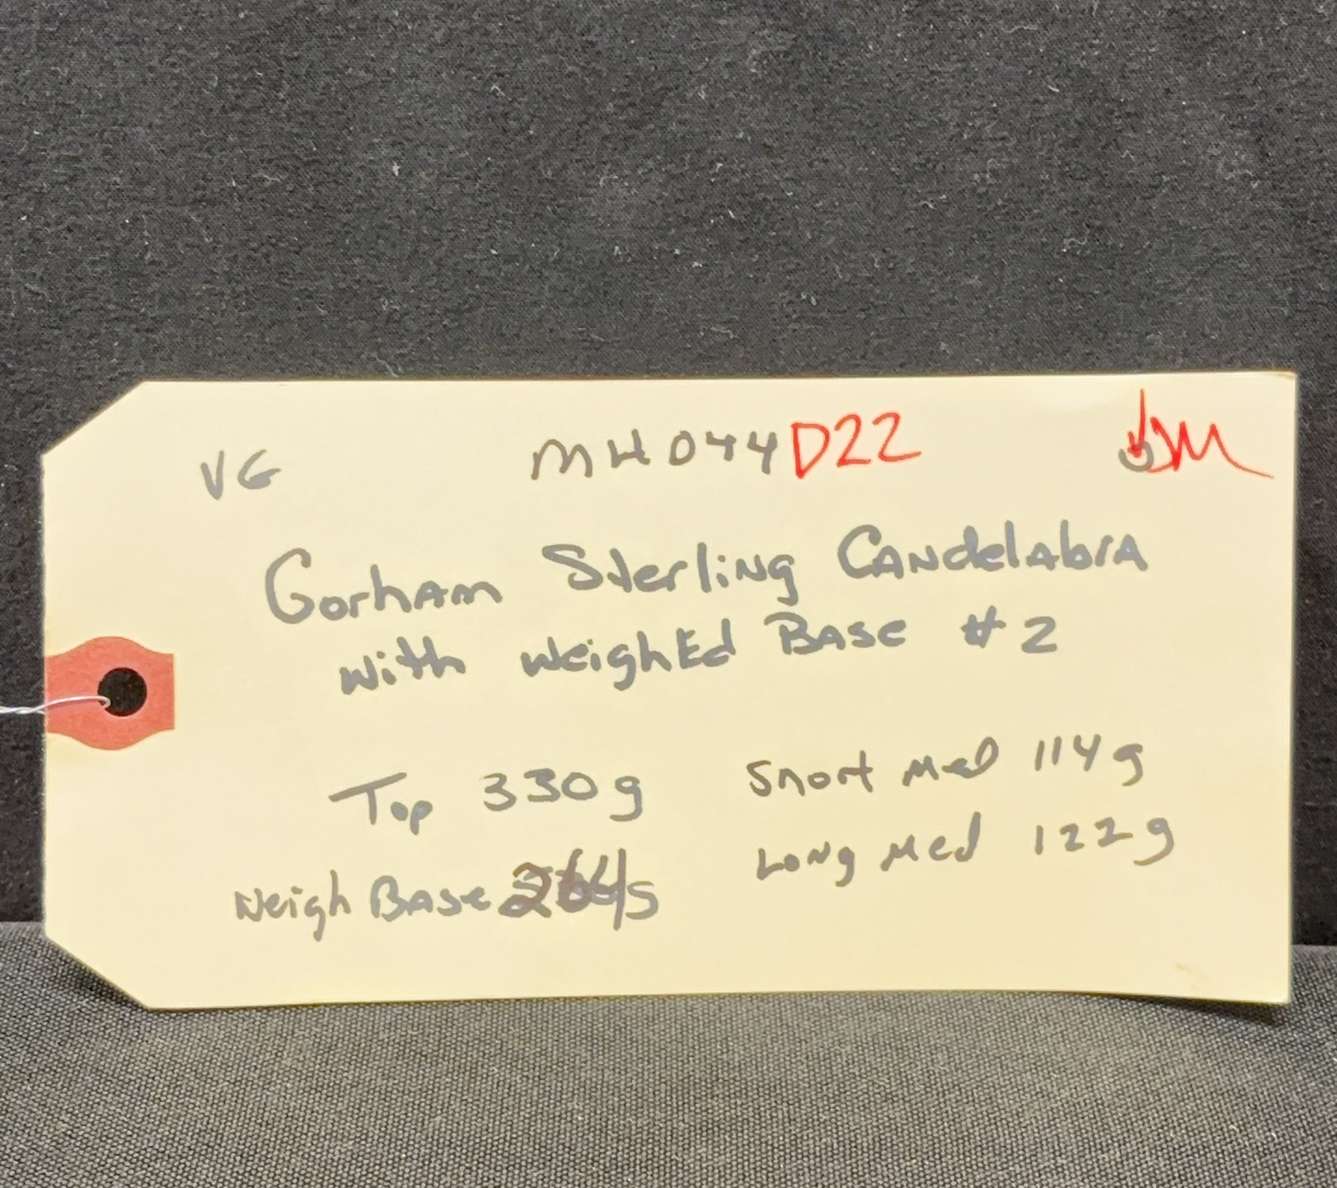 VG MH044 D22 JM
Gorham Sterling Candelabra
with Weighted Base #2
Top 330g Short Med 114g
Weigh Base Long Med 122g